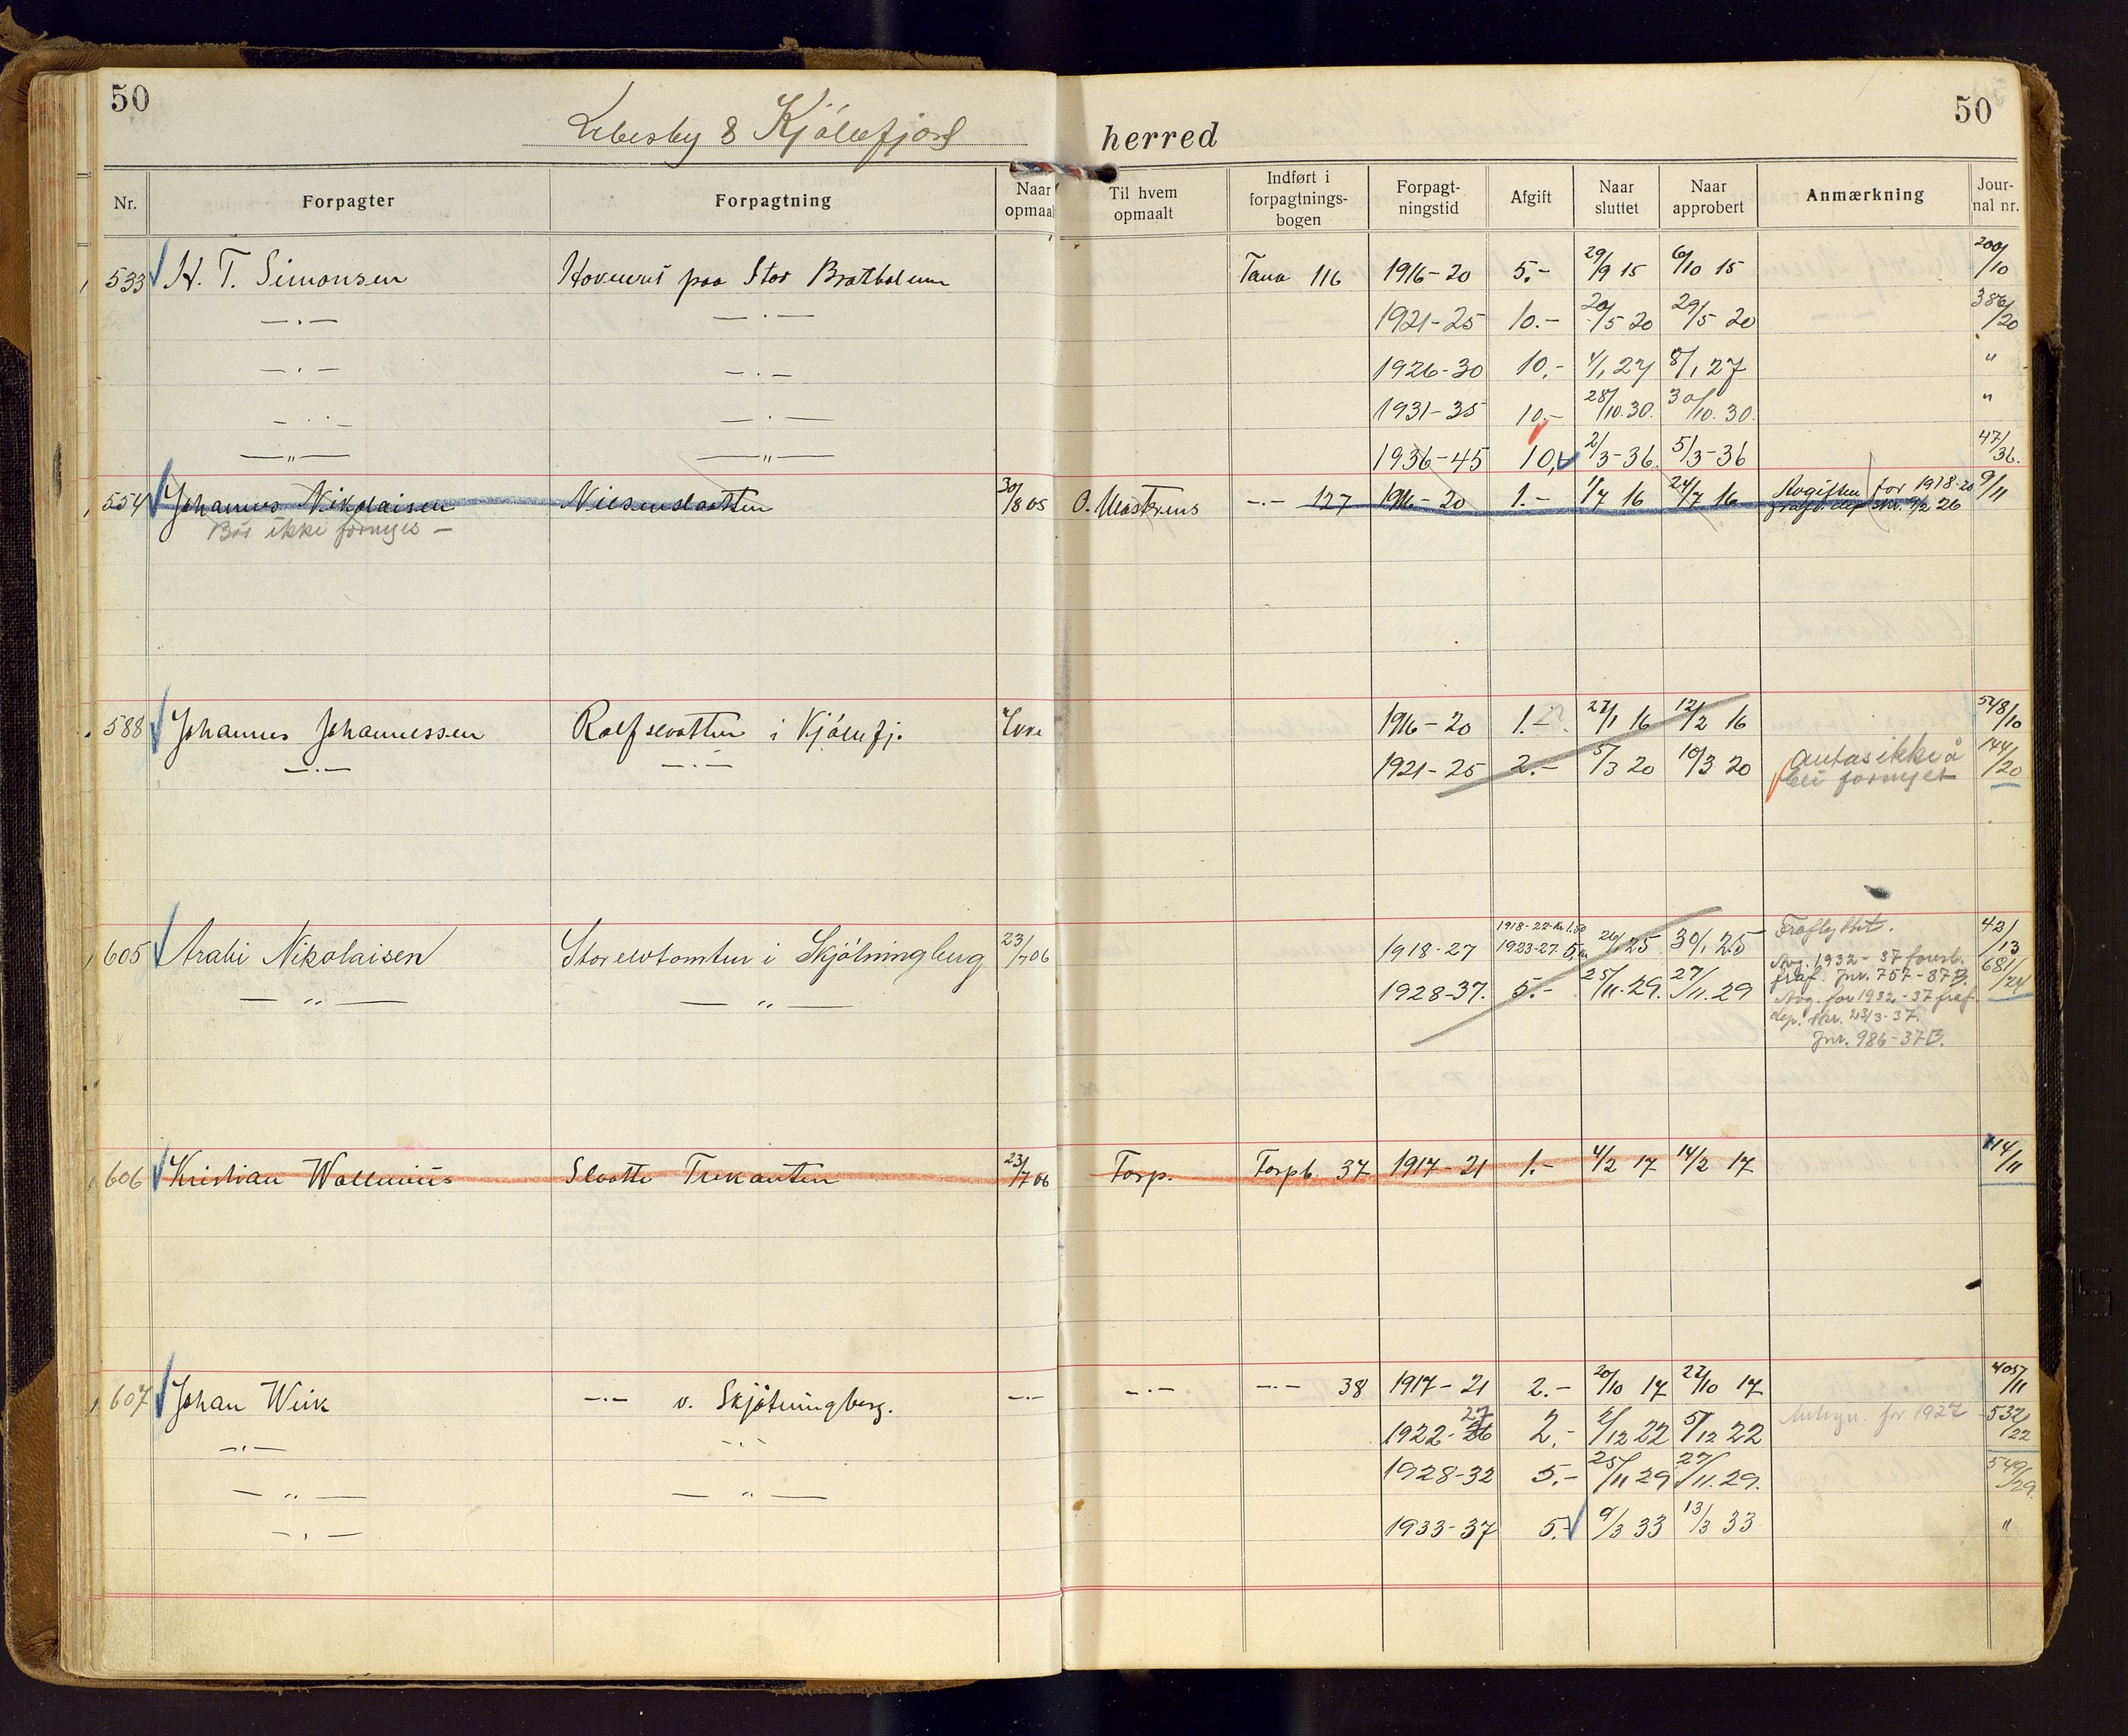 50
50
Lebesby & Kjöllefjord herred
Nr. Forpagter Forpagtning Naar opmaalt Til hvem opmaalt Indført i forpagtnings-bogen Forpagt-ningstid Afgift Naar sluttet Naar approbert Anmærkning Jour-nal nr.
533 H. T. Simonsen paa Stor Bratholmen Tana 116 1916-20 5.- 29/9 15 6/10 15 200/10
—.— —.— 1921-25 10.- 20/5 20 29/5 20 386/20
—.— —.— 1926-30 10.- 4/1 27 8/1 27 "
—.— —.— 1931-35 10.- 28/10.30. 30/10.30. "
—"— —"— 1936-45 10,- 2/3-36. 5/3-36 47/36.
554 Johannes Nikolaisen Nilsenslaatten 30/8 05 O. —.— 127 1916-20 1.- 1/7 16 24/7 16 Avgiften for 1918-20 9/11
Bör ikke fornyes — frafd. dep. skr. 9/2 26
588 Johannes Johannessen Rolfslaatten i Kjöllefj. 1916-20 1.- 27/1 16 12/2 16 548/10
—.— —.— 1921-25 2.- 5/3 20 10/3 20 antas ikke å 144/20
bli fornyet
605 Arali Nikolaisen Storelvtomten i Skjötningberg 23/7 06 1918-27 1918-22 kr 1.50 26/1 25 30/1 25 Fraflyttet. 42/13
1923-27 5,-
—"— —"— 1928-37. 5.- 25/11.29. 27/11.29 Avg. 1932-37 foresl. 681/24
fraf. Jnr. 757-37B.
Avg. for 1932-37 fraf.
dep. skr. 23/3-37.
Jnr. 986-37B.
606 Kristian Wallenius Slaatte Trekanten 23/7 06 Torp. Torpb. 37 1917-21 1.- 4/2 17 14/2 17 114/11
607 Johan Wiik —.— v. Skjøtningberg. —.— —.— —.— 38 1917-21 2.- 20/10 17 22/10 17 405/11
—.— —.— 1922-26 27 2.- 2/12 22 5/12 22 for 1927 532/22
—"— —"— 1928-32 5.- 25/11 29 27/11.29. 549/29.
—.— 1933-37 5.- 9/3 33 13/3 33 "